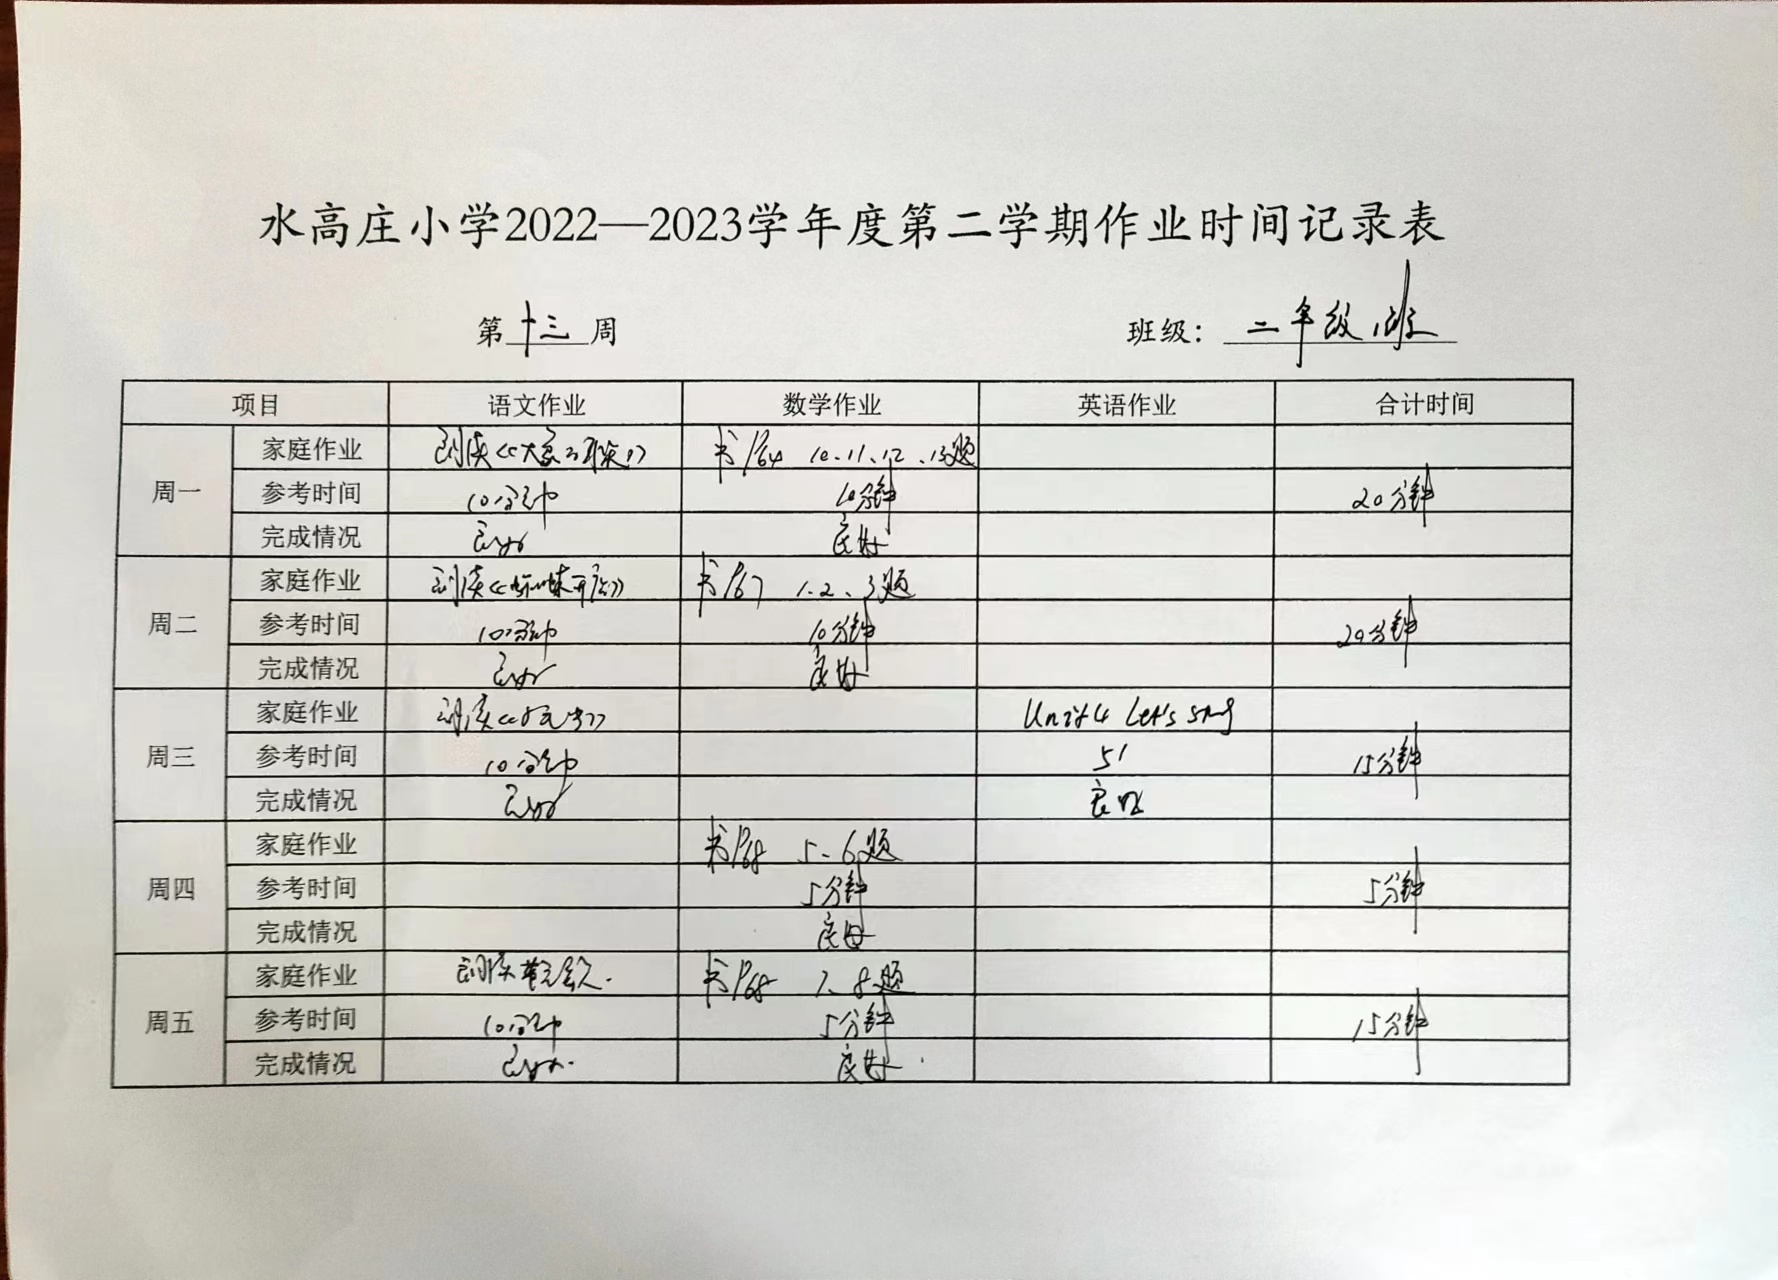 水高庄小学2022—2023学年度第二学期作业时间记录表
第十三周 班级：二年级1班
项目 语文作业 数学作业 英语作业 合计时间
周一 家庭作业 朗读《大象的耳朵》 书P64 10、11、12、13题
参考时间 10分钟 10分钟 20分钟
完成情况 良好 良好
周二 家庭作业 朗读《蜘蛛开店》 书P67 1、2、3题
参考时间 10分钟 10分钟 20分钟
完成情况 良好 良好
周三 家庭作业 朗读 Unit4 Let's sing
参考时间 10分钟 5' 15分钟
完成情况 良好 良好
周四 家庭作业 书P68 5、6题
参考时间 5分钟 5分钟
完成情况 良好
周五 家庭作业 朗读 书P68 7、8题
参考时间 10分钟 5分钟 15分钟
完成情况 良好 良好